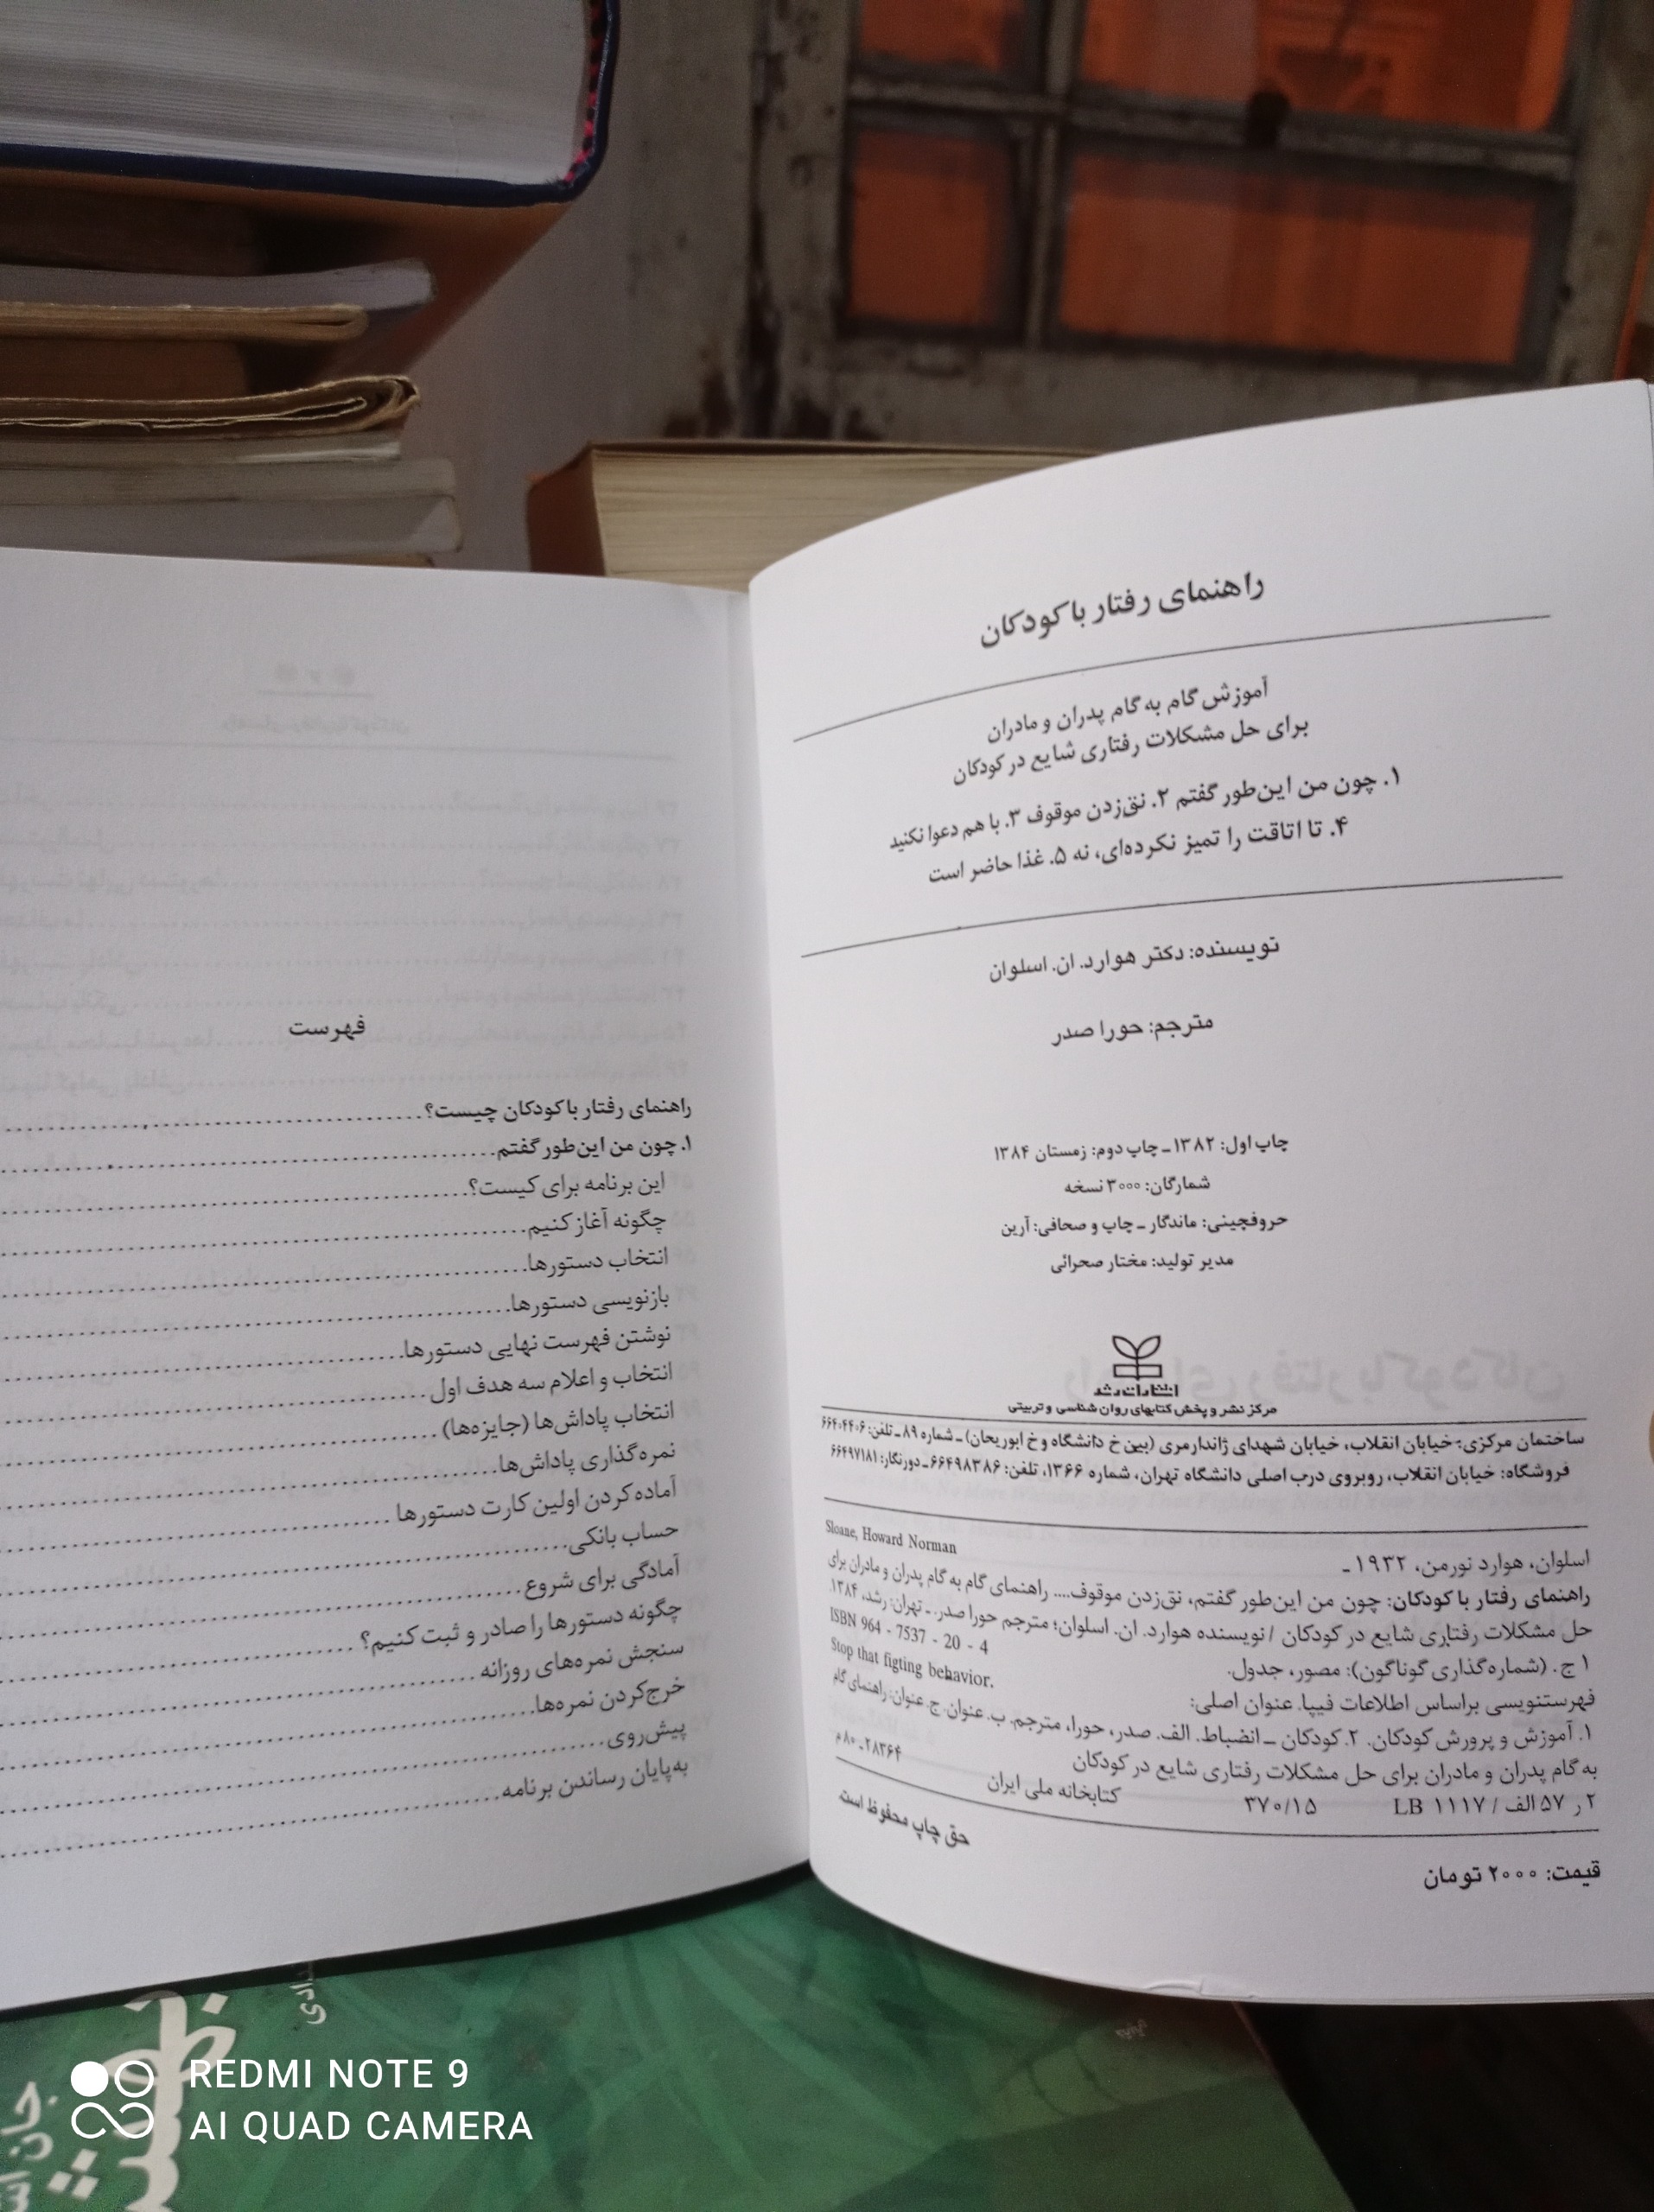 راهنمای رفتار با کودکان
آموزش گام به گام پدران و مادران
برای حل مشکلات رفتاری شایع در کودکان
۱. چون من این‌طور گفتم ۲. نق‌زدن موقوف ۳. با هم دعوا نکنید
۴. تا اتاقت را تمیز نکرده‌ای، نه ۵. غذا حاضر است
نویسنده: دکتر هوارد. ان. اسلوان
مترجم: حورا صدر
چاپ اول: ۱۳۸۲ ـ چاپ دوم: زمستان ۱۳۸۴
شمارگان: ۳۰۰۰ نسخه
حروفچینی: ماندگار ـ چاپ و صحافی: آرین
مدیر تولید: مختار صحرائی
انتشارات رشد
مرکز نشر و پخش کتابهای روان شناسی و تربیتی
ساختمان مرکزی: خیابان انقلاب، خیابان شهدای ژاندارمری (بین خ دانشگاه و خ ابوریحان) ـ شماره ۸۹ ـ تلفن: ۶۶۴۰۴۴۰۶
فروشگاه: خیابان انقلاب، روبروی درب اصلی دانشگاه تهران، شماره ۱۳۶۶، تلفن: ۶۶۴۹۸۳۸۶ ـ دورنگار: ۶۶۴۹۷۱۸۱
Sloane, Howard Norman
اسلوان، هوارد نورمن، ۱۹۳۲ ـ
راهنمای رفتار با کودکان: چون من این‌طور گفتم، نق‌زدن موقوف.... راهنمای گام به گام پدران و مادران برای
حل مشکلات رفتاری شایع در کودکان / نویسنده هوارد. ان. اسلوان؛ مترجم حورا صدر. ـ تهران: رشد، ۱۳۸۴.
۱ ج. (شماره‌گذاری گوناگون): مصور، جدول.
ISBN 964 - 7537 - 20 - 4
فهرستنویسی براساس اطلاعات فیپا. عنوان اصلی:
Stop that figting behavior.
۱. آموزش و پرورش کودکان. ۲. کودکان ـ انضباط. الف. صدر، حورا، مترجم. ب. عنوان. ج. عنوان: راهنمای گام
به گام پدران و مادران برای حل مشکلات رفتاری شایع در کودکان
۲ ر ۵۷ الف / LB ۱۱۱۷ ۳۷۰/۱۵ کتابخانه ملی ایران ۲۸۳۶۴ـ۸۰م
حق چاپ محفوظ است.
قیمت: ۲۰۰۰ تومان
فهرست
راهنمای رفتار با کودکان چیست؟
۱. چون من این‌طور گفتم
این برنامه برای کیست؟
چگونه آغاز کنیم
انتخاب دستورها
بازنویسی دستورها
نوشتن فهرست نهایی دستورها
انتخاب و اعلام سه هدف اول
انتخاب پاداش‌ها (جایزه‌ها)
نمره‌گذاری پاداش‌ها
آماده کردن اولین کارت دستورها
حساب بانکی
آمادگی برای شروع
چگونه دستورها را صادر و ثبت کنیم؟
سنجش نمره‌های روزانه
خرج کردن نمره‌ها
پیش‌روی
به‌پایان رساندن برنامه
جان
REDMI NOTE 9
AI QUAD CAMERA